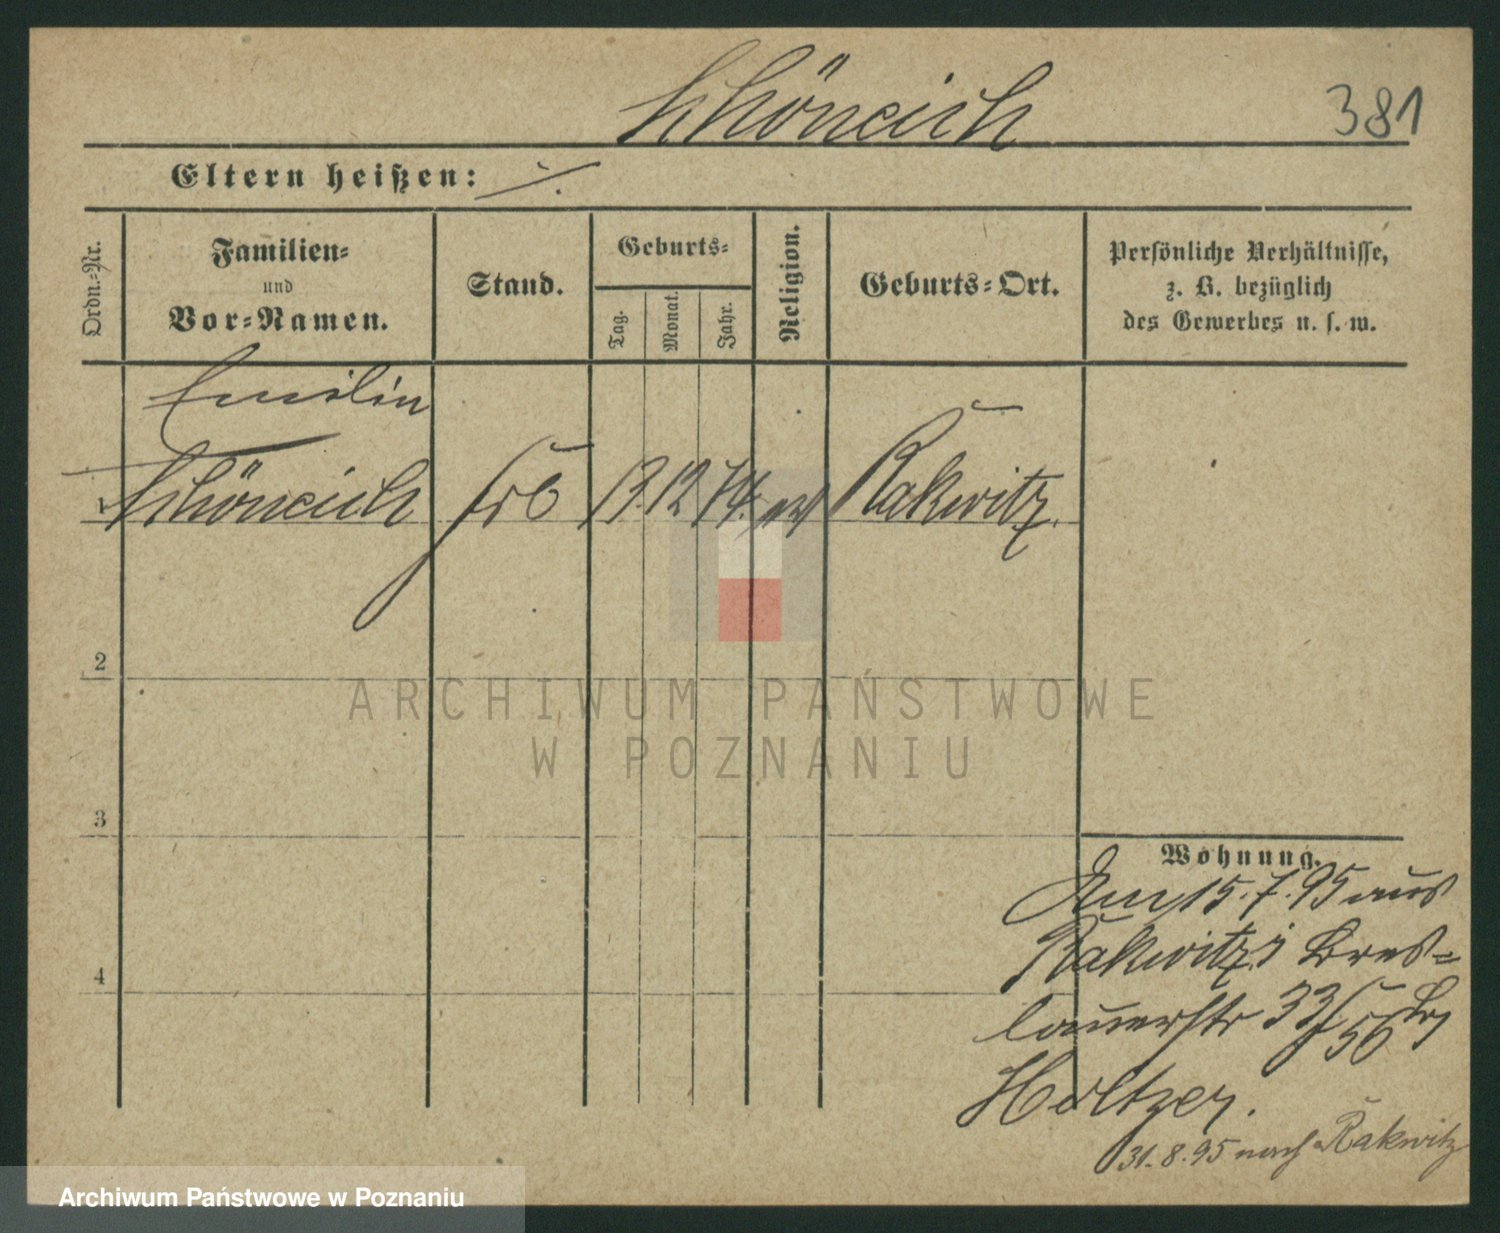 Schöneich
381
Eltern heißen: ./.
Ordn.-Nr.
Familien-
und
Vor-Namen.
Stand.
Geburts-
Tag.
Monat.
Jahr.
Religion.
Geburts-Ort.
Persönliche Verhältnisse,
z. B. bezüglich
des Gewerbes u. s. w.
Emilie
1 Schöneich 12 74. ev Rakwitz.
2
ARCHIWUM PAŃSTWOWE
W POZNANIU
3
Wohnung.
Am 15.7.95 aus
Rakwitz Bres-
lauerstr 33/56 bei
Holtzer.
31.8.95 nach Rakwitz
4
Archiwum Państwowe w Poznaniu